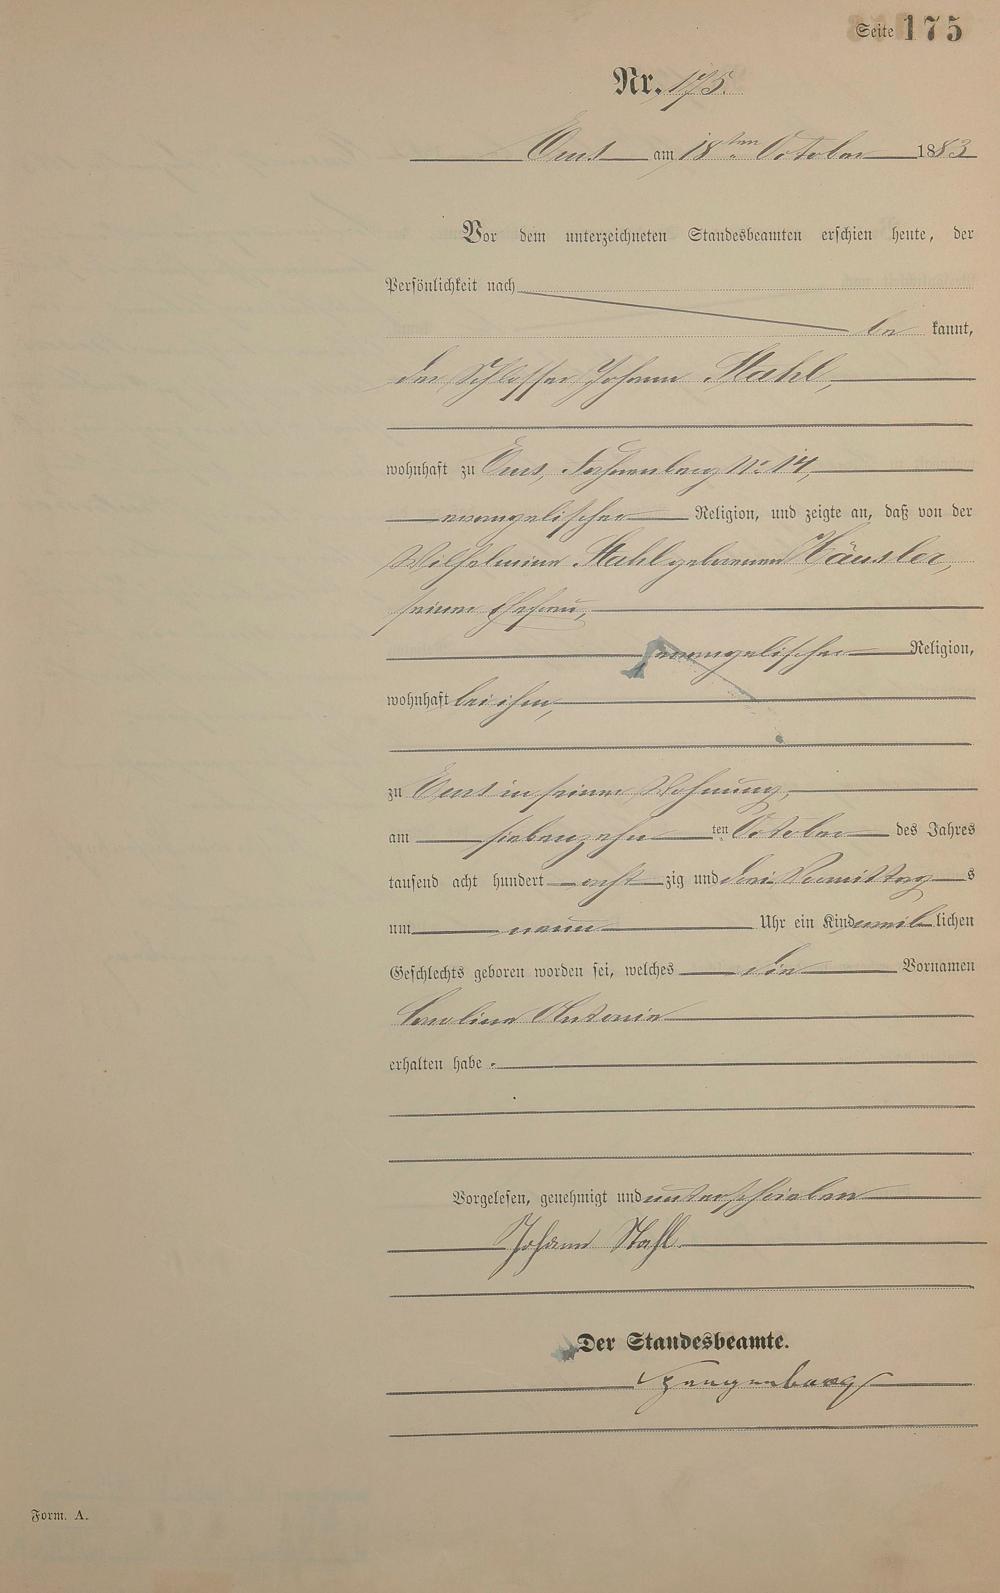 Seite 175
Nr. 175.
Ems am 18ten October 1883
Vor dem unterzeichneten Standesbeamten erschien heute, der
Persönlichkeit nach
be kannt,
der Schlosser Johann Stahl,
wohnhaft zu Ems, No 14,
evangelischer Religion, und zeigte an, daß von der
Wilhelmine Stahl geborenen Häusler,
seiner Ehefrau,
evangelischer Religion,
wohnhaft bei ihm,
zu Ems in seiner Wohnung,
am siebenzehn ten October des Jahres
tausend acht hundert acht zig und drei Vormittag s
um neun Uhr ein Kind weib lichen
Geschlechts geboren worden sei, welches die Vornamen
Caroline Antonie
erhalten habe.
Vorgelesen, genehmigt und unterschrieben
Johann Stahl
Der Standesbeamte.
Form. A.